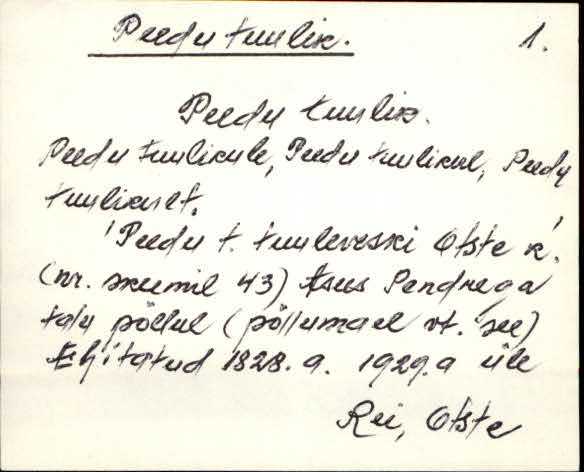 Peedu tuulik. 1.
Peedu tuulik.
Peedu tuulikule, Peedu tuulikul, Peedu
tuulikult.
Peedu t. tuuleveski Otste k.
(nr. skeemil 43) Asus Pendrega
talu põllul (põllumäel vt. see)
Ehitatud 1828. a. 1929. a üle
Rei, Otste